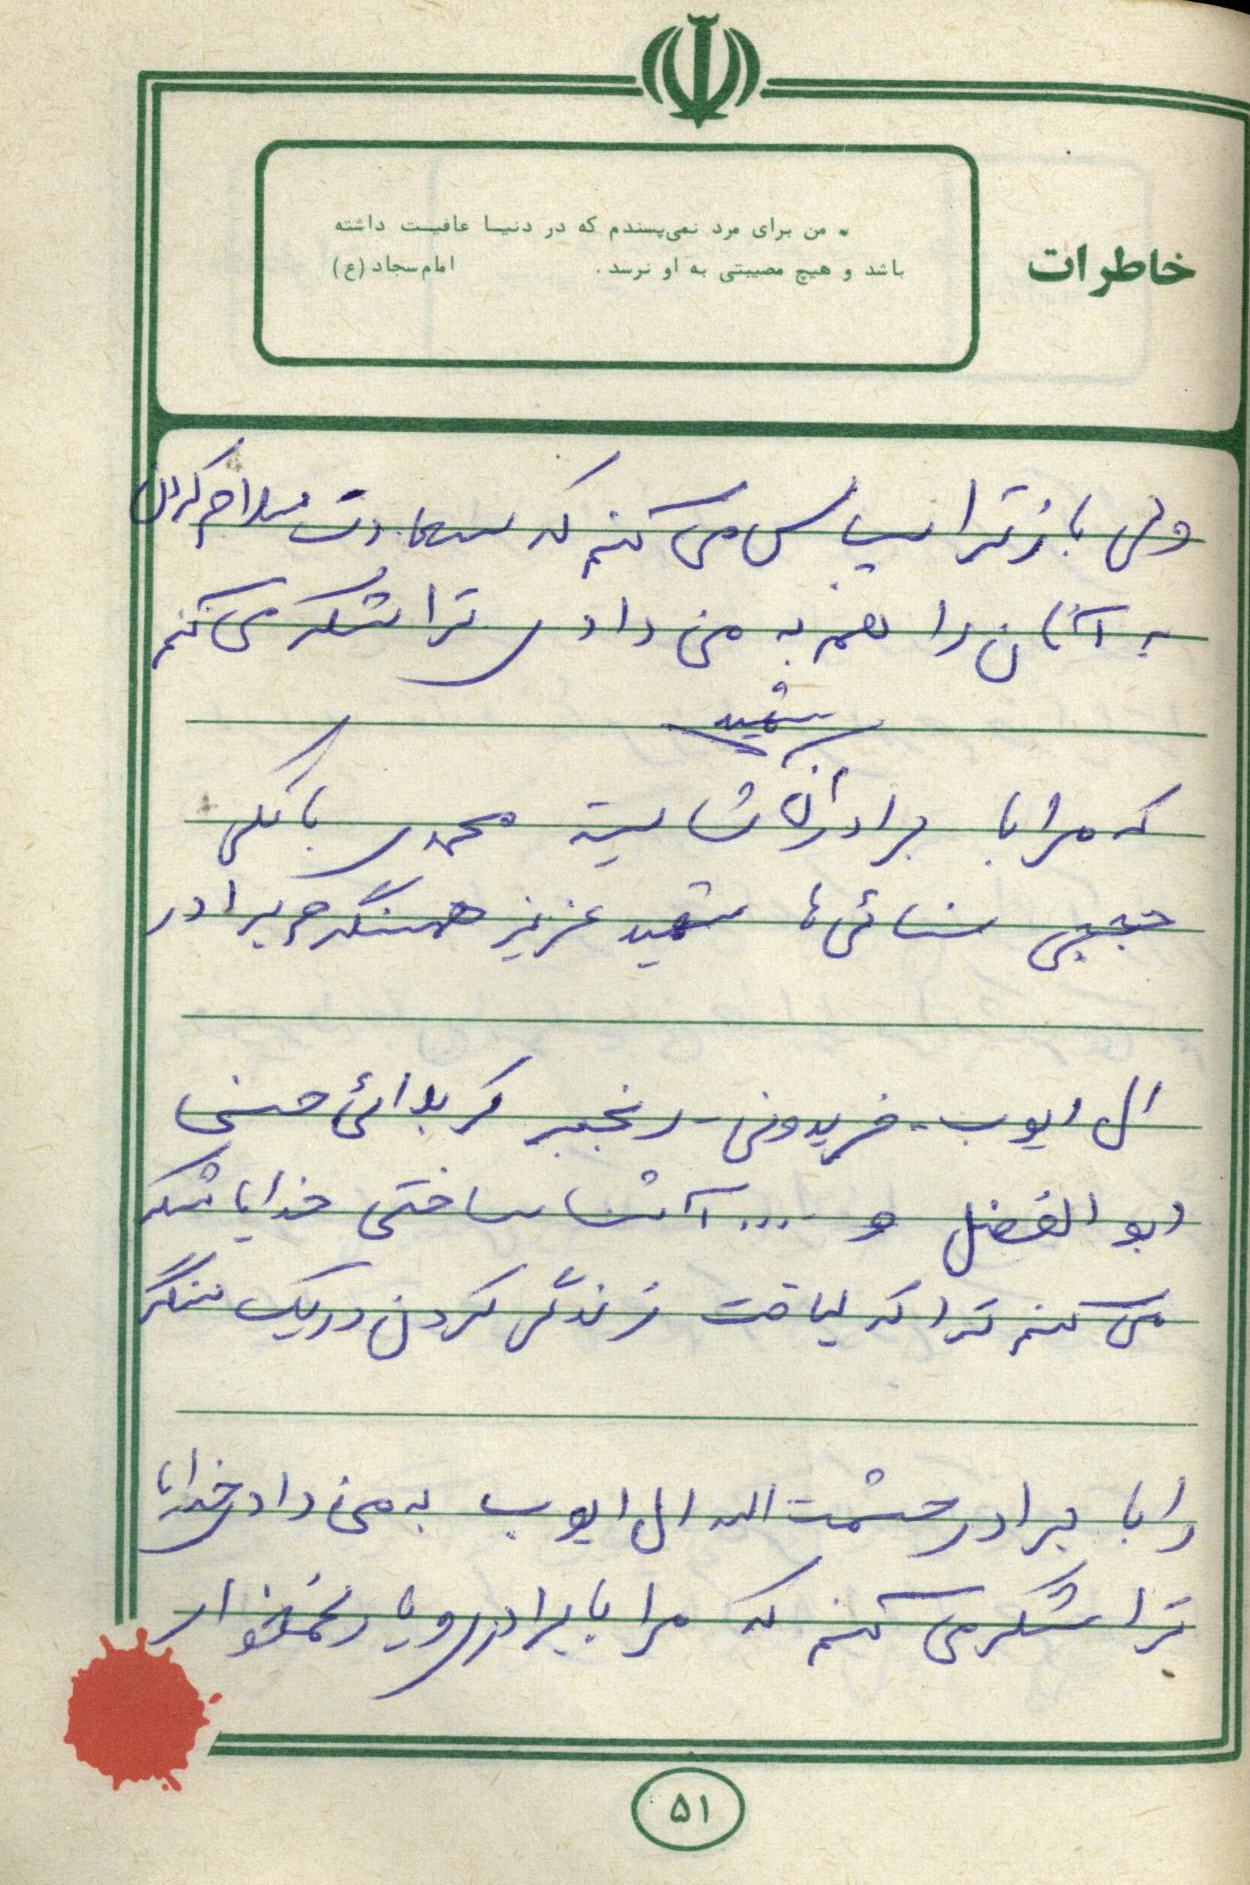 * من برای مرد نمی‌پسندم که در دنیا عافیت داشته
باشد و هیچ مصیبتی به او نرسد. امام سجاد (ع)
خاطرات
ولی باز ترا سپاس می کنم که سعادت سلام کردن
به آنان را هم به من دادی ترا شکر می کنم
شهید
که مرا با برادران شایسته محمدی بابکلی
حججی سنائی ها شهید عزیز همسنگرم برادر
ال ایوب - فریدونی - رنجبر کربلائی حسنی
ابوالفضل و .... آشنا ساختی خدایا شکر
می کنم ترا که لیاقت زندگی کردن در یک سنگر
را با برادر حشمت اله ال ایوب به من دادی خدایا
ترا شکر می کنم که مرا با برادری و یار غمخوار
۵۱